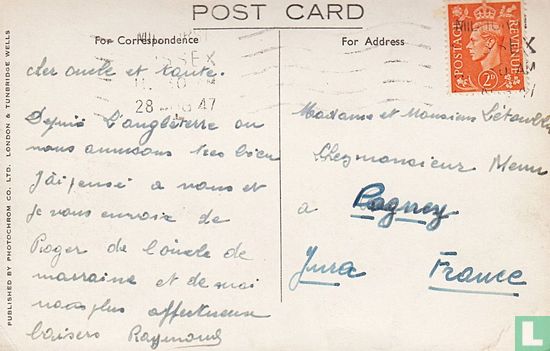 POST CARD
For Correspondence
For Address
POSTAGE
REVENUE
2D
SSEX
28 47
PUBLISHED BY PHOTOCHROM CO. LTD. LONDON & TUNBRIDGE WELLS
cher oncle et tante.
Depuis L'angleterre ou
nous amusons tres bien
J'ai pensé a vous et
Je vous envoie de
Roger de l'oncle de
marraine et de moi
nos plus affectueux
baisers Raymond
Madame et Monsieur
Chez monsieur Menu
a Pagney
Jura France
catawiki